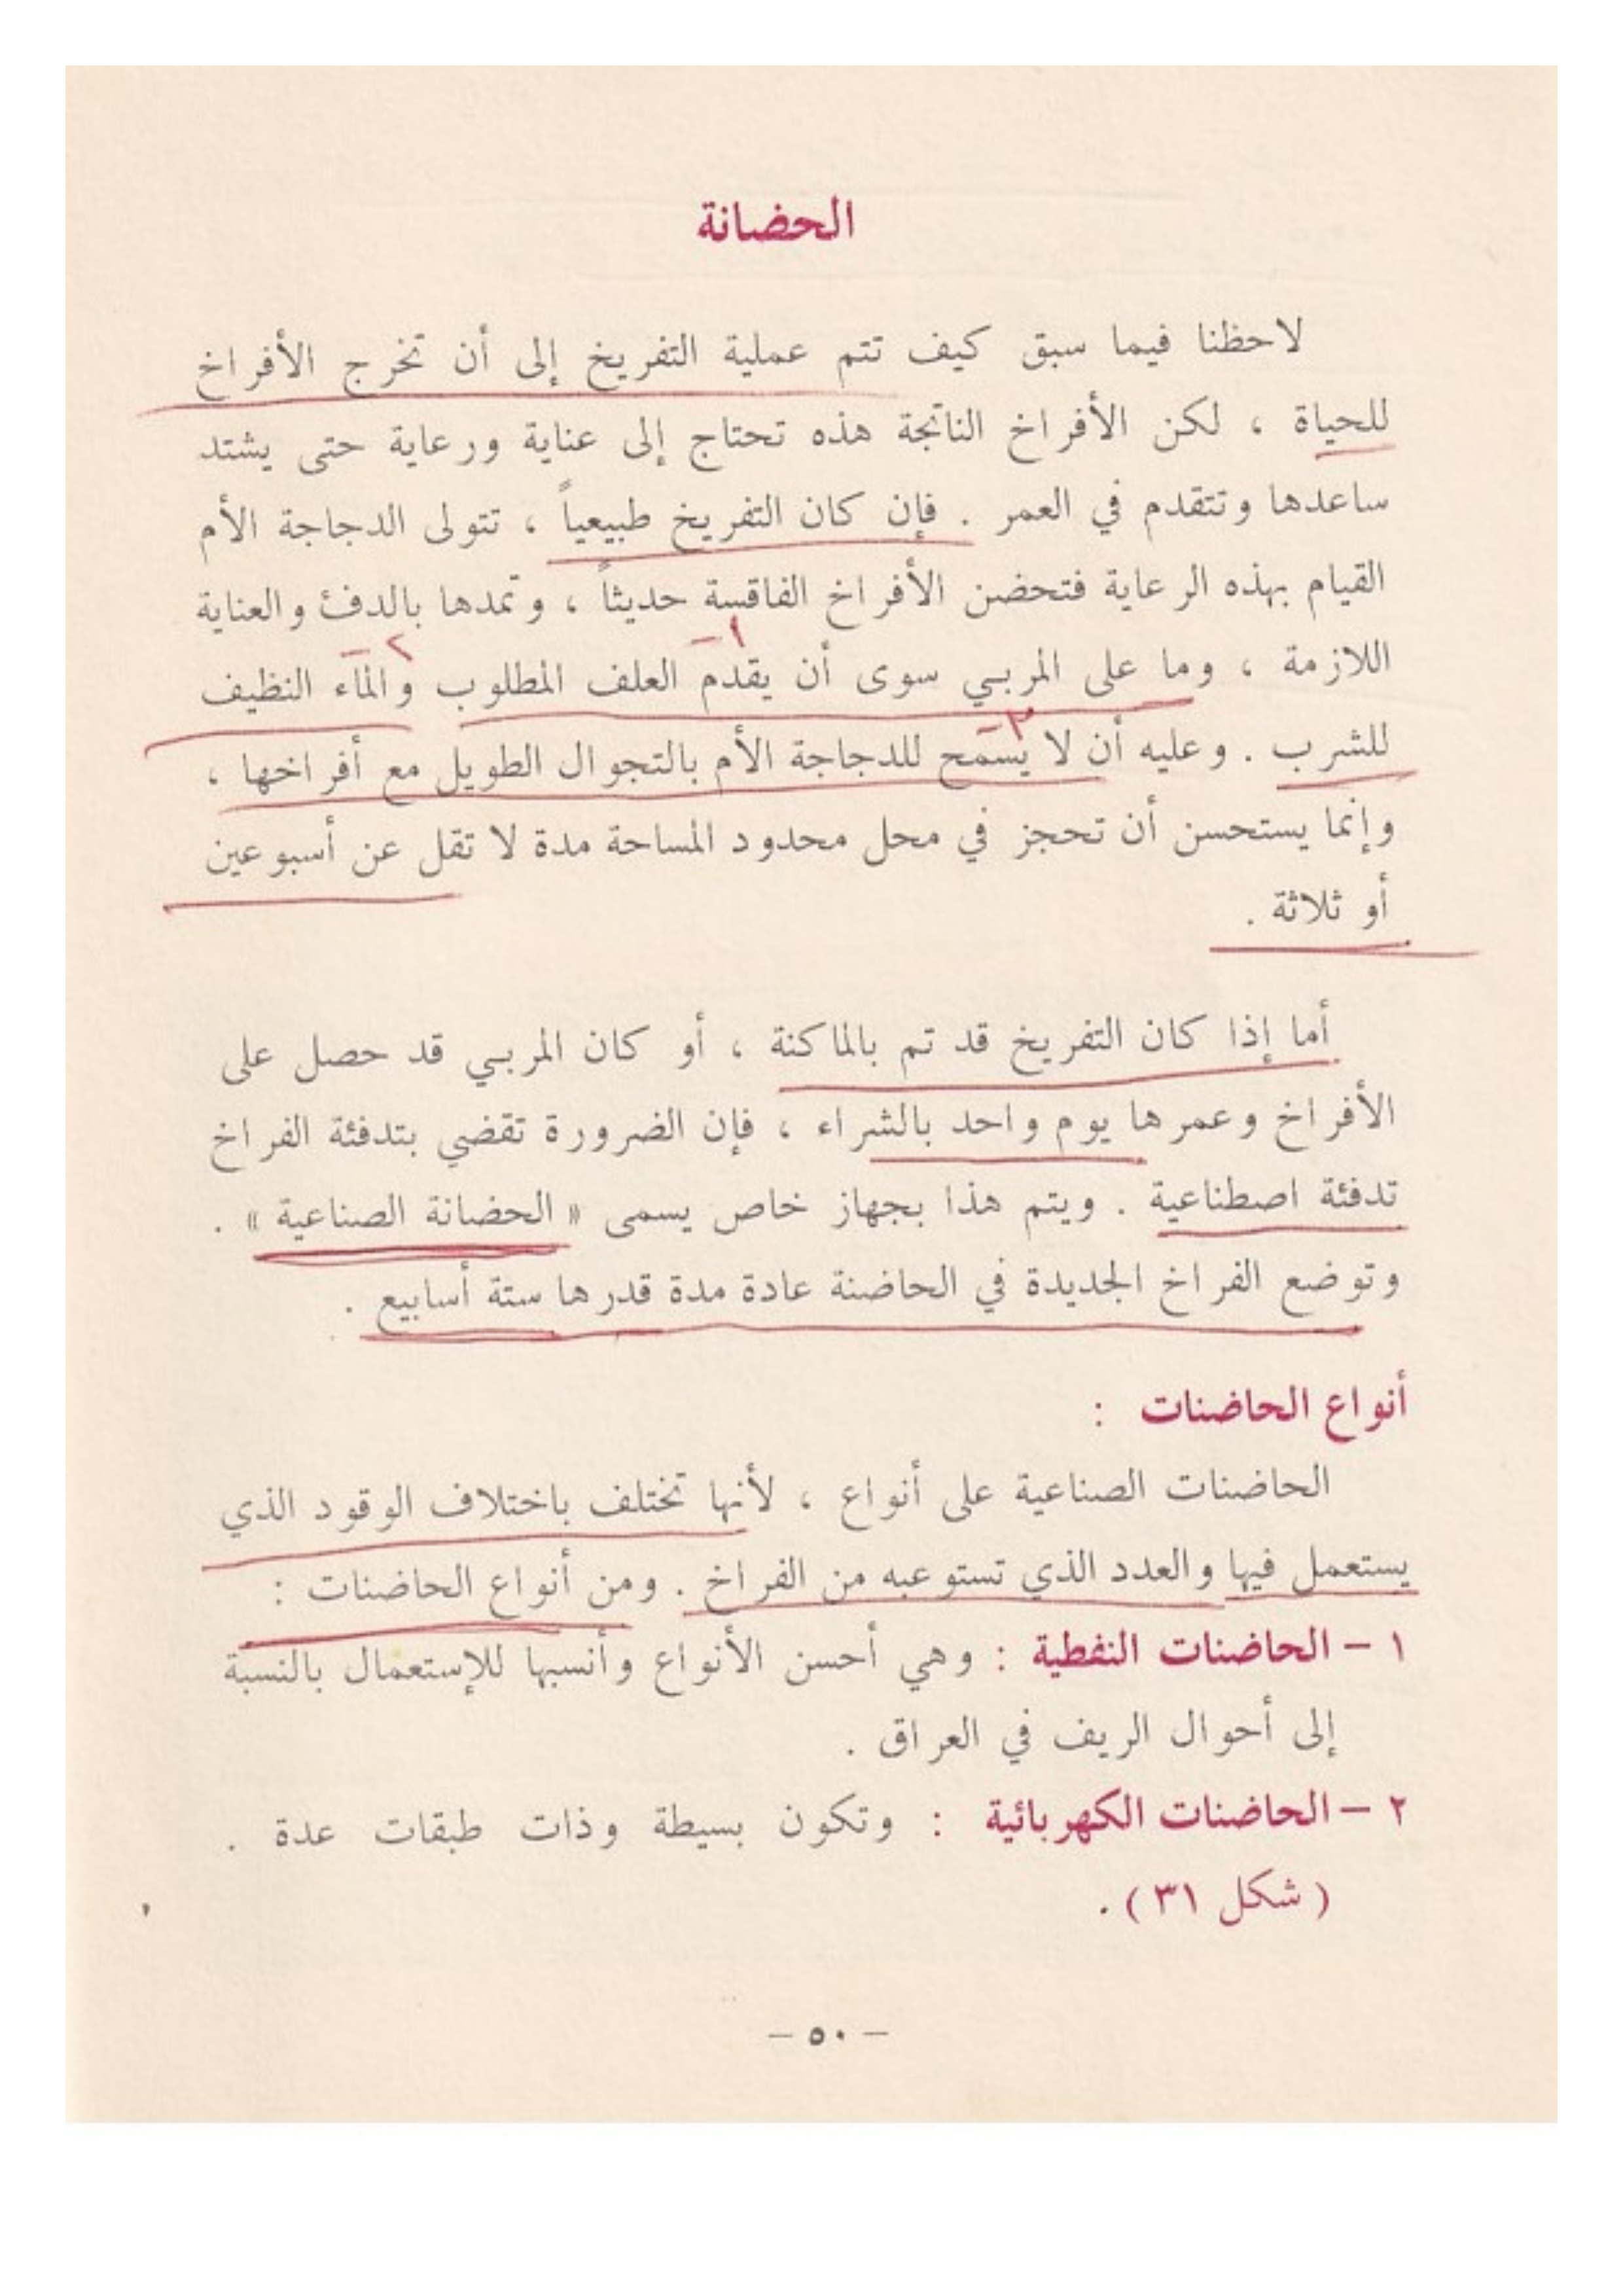 الحضانة
لاحظنا فيما سبق كيف تتم عملية التفريخ إلى أن تخرج الأفراخ
للحياة ، لكن الأفراخ الناتجة هذه تحتاج إلى عناية ورعاية حتى يشتد
ساعدها وتتقدم في العمر . فإن كان التفريخ طبيعياً ، تتولى الدجاجة الأم
القيام بهذه الرعاية فتحضن الأفراخ الفاقسة حديثاً ، وتمدها بالدفئ والعناية
١ - ٢ -
اللازمة ، وما على المربي سوى أن يقدم العلف المطلوب والماء النظيف
٣ -
للشرب . وعليه أن لا يسمح للدجاجة الأم بالتجوال الطويل مع أفراخها ،
وإنما يستحسن أن تحجز في محل محدود المساحة مدة لا تقل عن أسبوعين
أو ثلاثة .
أما إذا كان التفريخ قد تم بالماكنة ، أو كان المربي قد حصل على
الأفراخ وعمرها يوم واحد بالشراء ، فإن الضرورة تقضي بتدفئة الفراخ
تدفئة اصطناعية . ويتم هذا بجهاز خاص يسمى « الحضانة الصناعية » .
وتوضع الفراخ الجديدة في الحاضنة عادة مدة قدرها ستة أسابيع .
أنواع الحاضنات :
الحاضنات الصناعية على أنواع ، لأنها تختلف باختلاف الوقود الذي
يستعمل فيها والعدد الذي تستوعبه من الفراخ . ومن أنواع الحاضنات :
١ – الحاضنات النفطية : وهي أحسن الأنواع وأنسبها للإستعمال بالنسبة
إلى أحوال الريف في العراق .
٢ – الحاضنات الكهربائية : وتكون بسيطة وذات طبقات عدة .
( شكل ٣١ ) .
– ٥٠ –